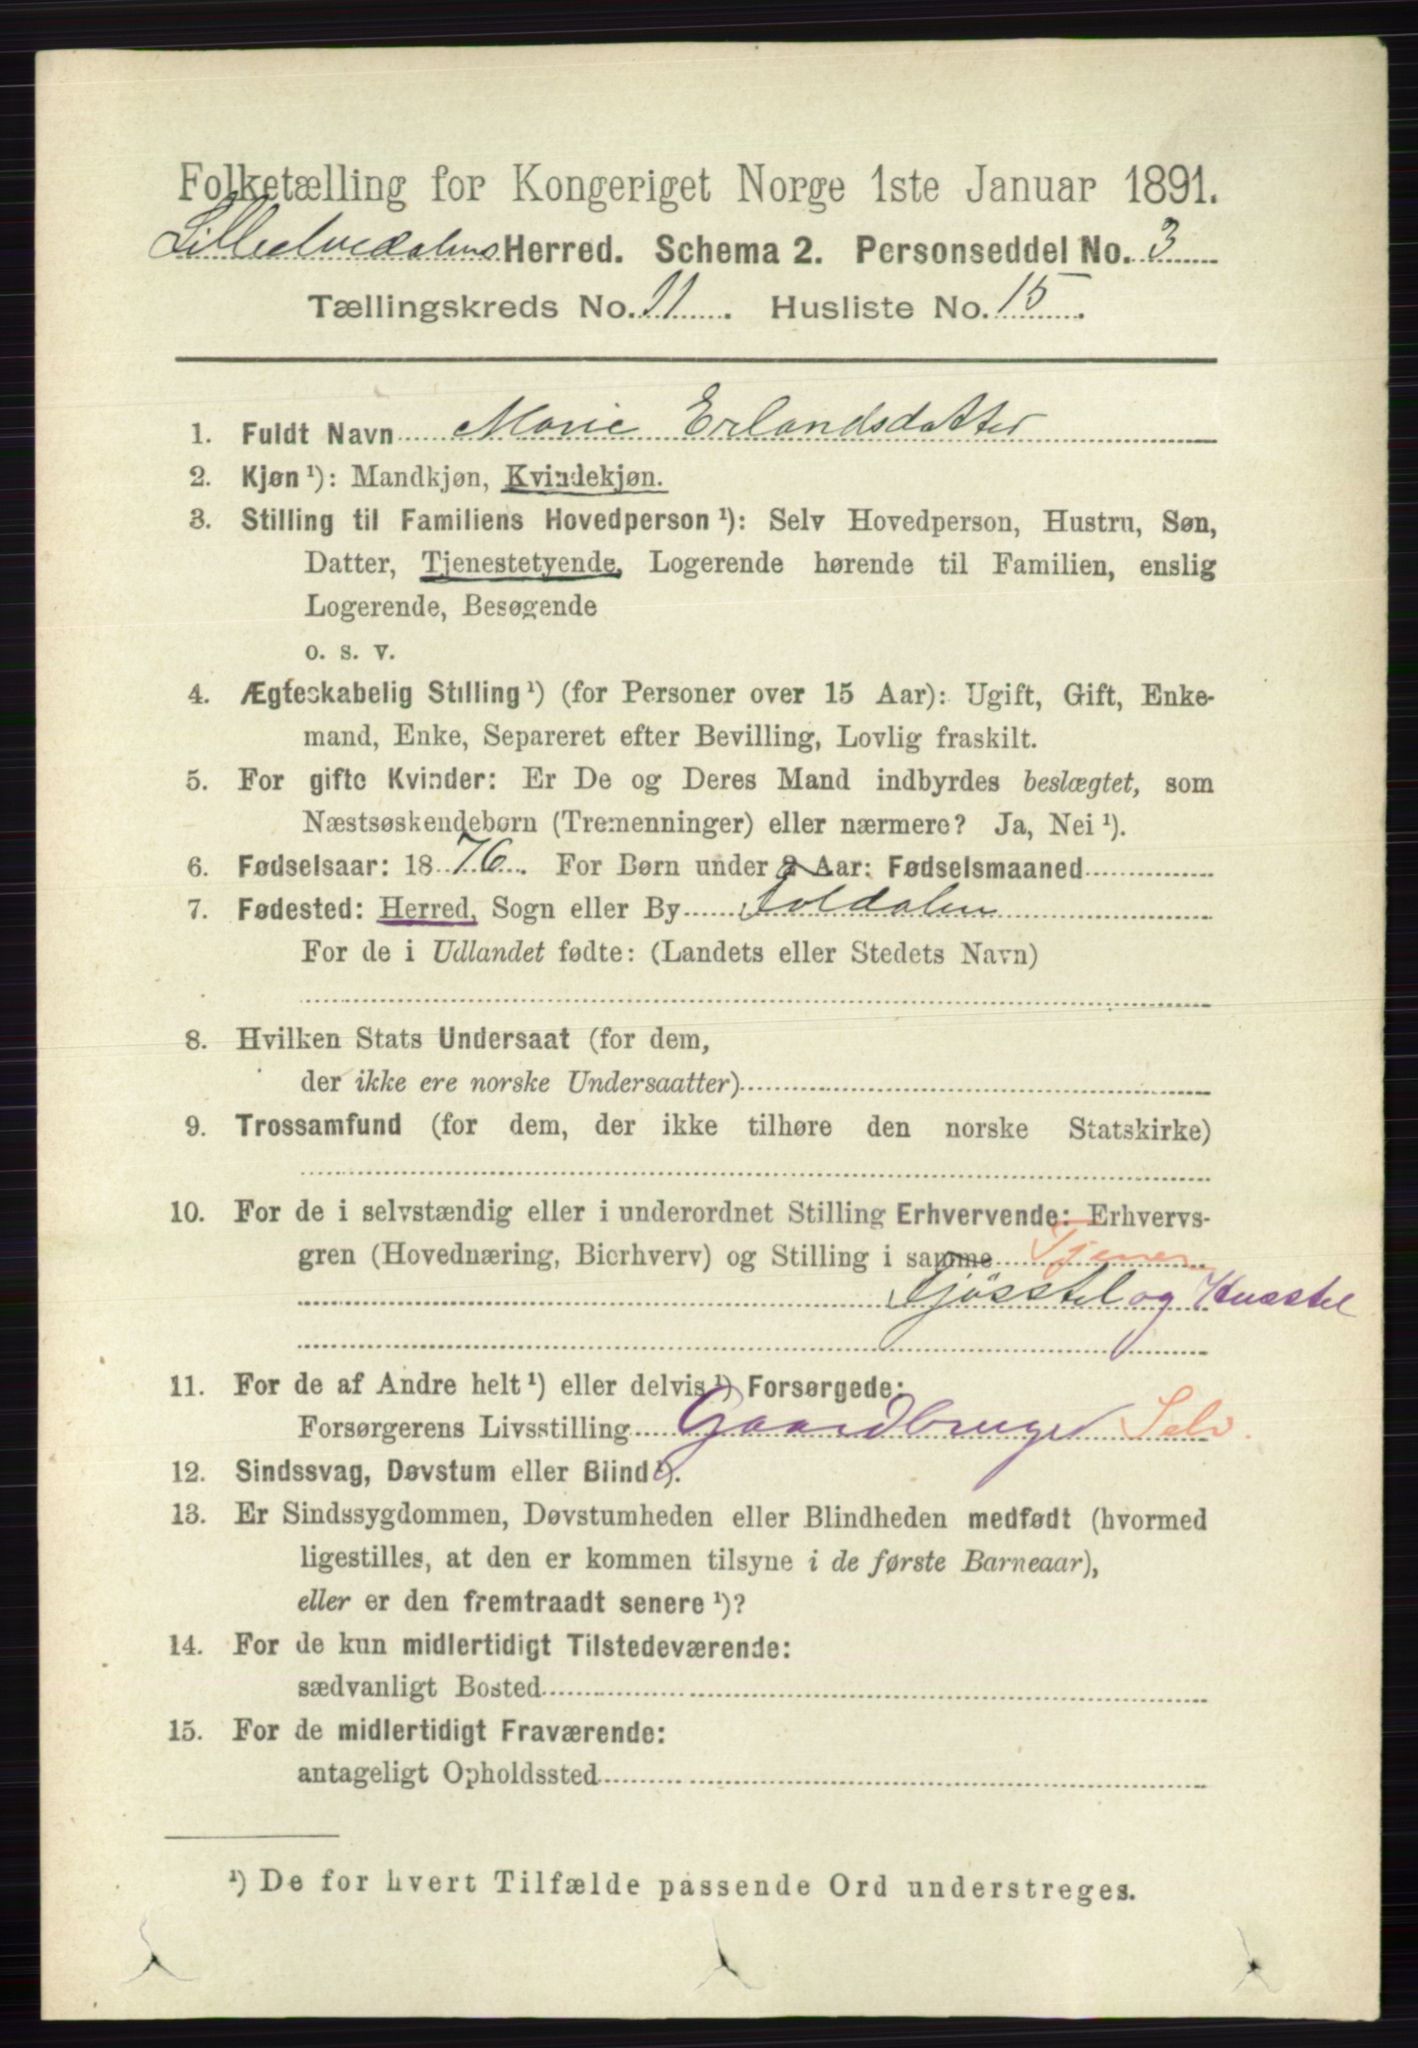 Folketælling for Kongeriget Norge 1ste Januar 1891.
Lilleelvedalens Herred. Schema 2. Personseddel No. 3
Tællingskreds No. 11. Husliste No. 15.
1. Fuldt Navn Marie Erlandsdatter
2. Kjøn ¹): Mandkjøn, Kvindekjøn.
3. Stilling til Familiens Hovedperson ¹): Selv Hovedperson, Hustru, Søn,
Datter, Tjenestetyende, Logerende hørende til Familien, enslig
Logerende, Besøgende
o. s. v.
4. Ægteskabelig Stilling ¹) (for Personer over 15 Aar): Ugift, Gift, Enke-
mand, Enke, Separeret efter Bevilling, Lovlig fraskilt.
5. For gifte Kvinder: Er De og Deres Mand indbyrdes beslægtet, som
Næstsøskendebørn (Tremenninger) eller nærmere? Ja, Nei ¹).
6. Fødselsaar: 1876. For Børn under 2 Aar: Fødselsmaaned
7. Fødested: Herred, Sogn eller By Foldalen
For de i Udlandet fødte: (Landets eller Stedets Navn)
8. Hvilken Stats Undersaat (for dem,
der ikke ere norske Undersaatter)
9. Trossamfund (for dem, der ikke tilhøre den norske Statskirke)
10. For de i selvstændig eller i underordnet Stilling Erhvervende: Erhvervs-
gren (Hovednæring, Bierhverv) og Stilling i samme Tjener
Fjösstel og Husstel
11. For de af Andre helt ¹) eller delvis ¹) Forsørgede:
Forsørgerens Livsstilling Gaardbruger Selv.
12. Sindssvag, Døvstum eller Blind ¹).
13. Er Sindssygdommen, Døvstumheden eller Blindheden medfødt (hvormed
ligestilles, at den er kommen tilsyne i de første Barneaar),
eller er den fremtraadt senere ¹)?
14. For de kun midlertidigt Tilstedeværende:
sædvanligt Bosted
15. For de midlertidigt Fraværende:
antageligt Opholdssted
¹) De for hvert Tilfælde passende Ord understreges.